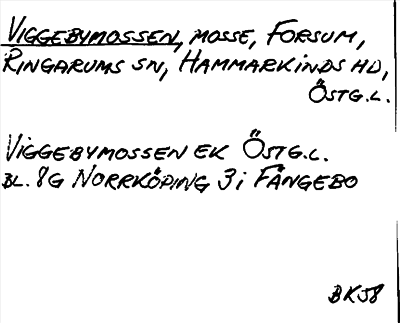 VIGGEBYMOSSEN, MOSSE, FORSUM,
RINGARUMS SN, HAMMARKINDS HD,
ÖSTG.L.
VIGGEBYMOSSEN EK ÖSTG.L.
BL. 8G NORRKÖPING 3i FÅNGEBO
BKJ8